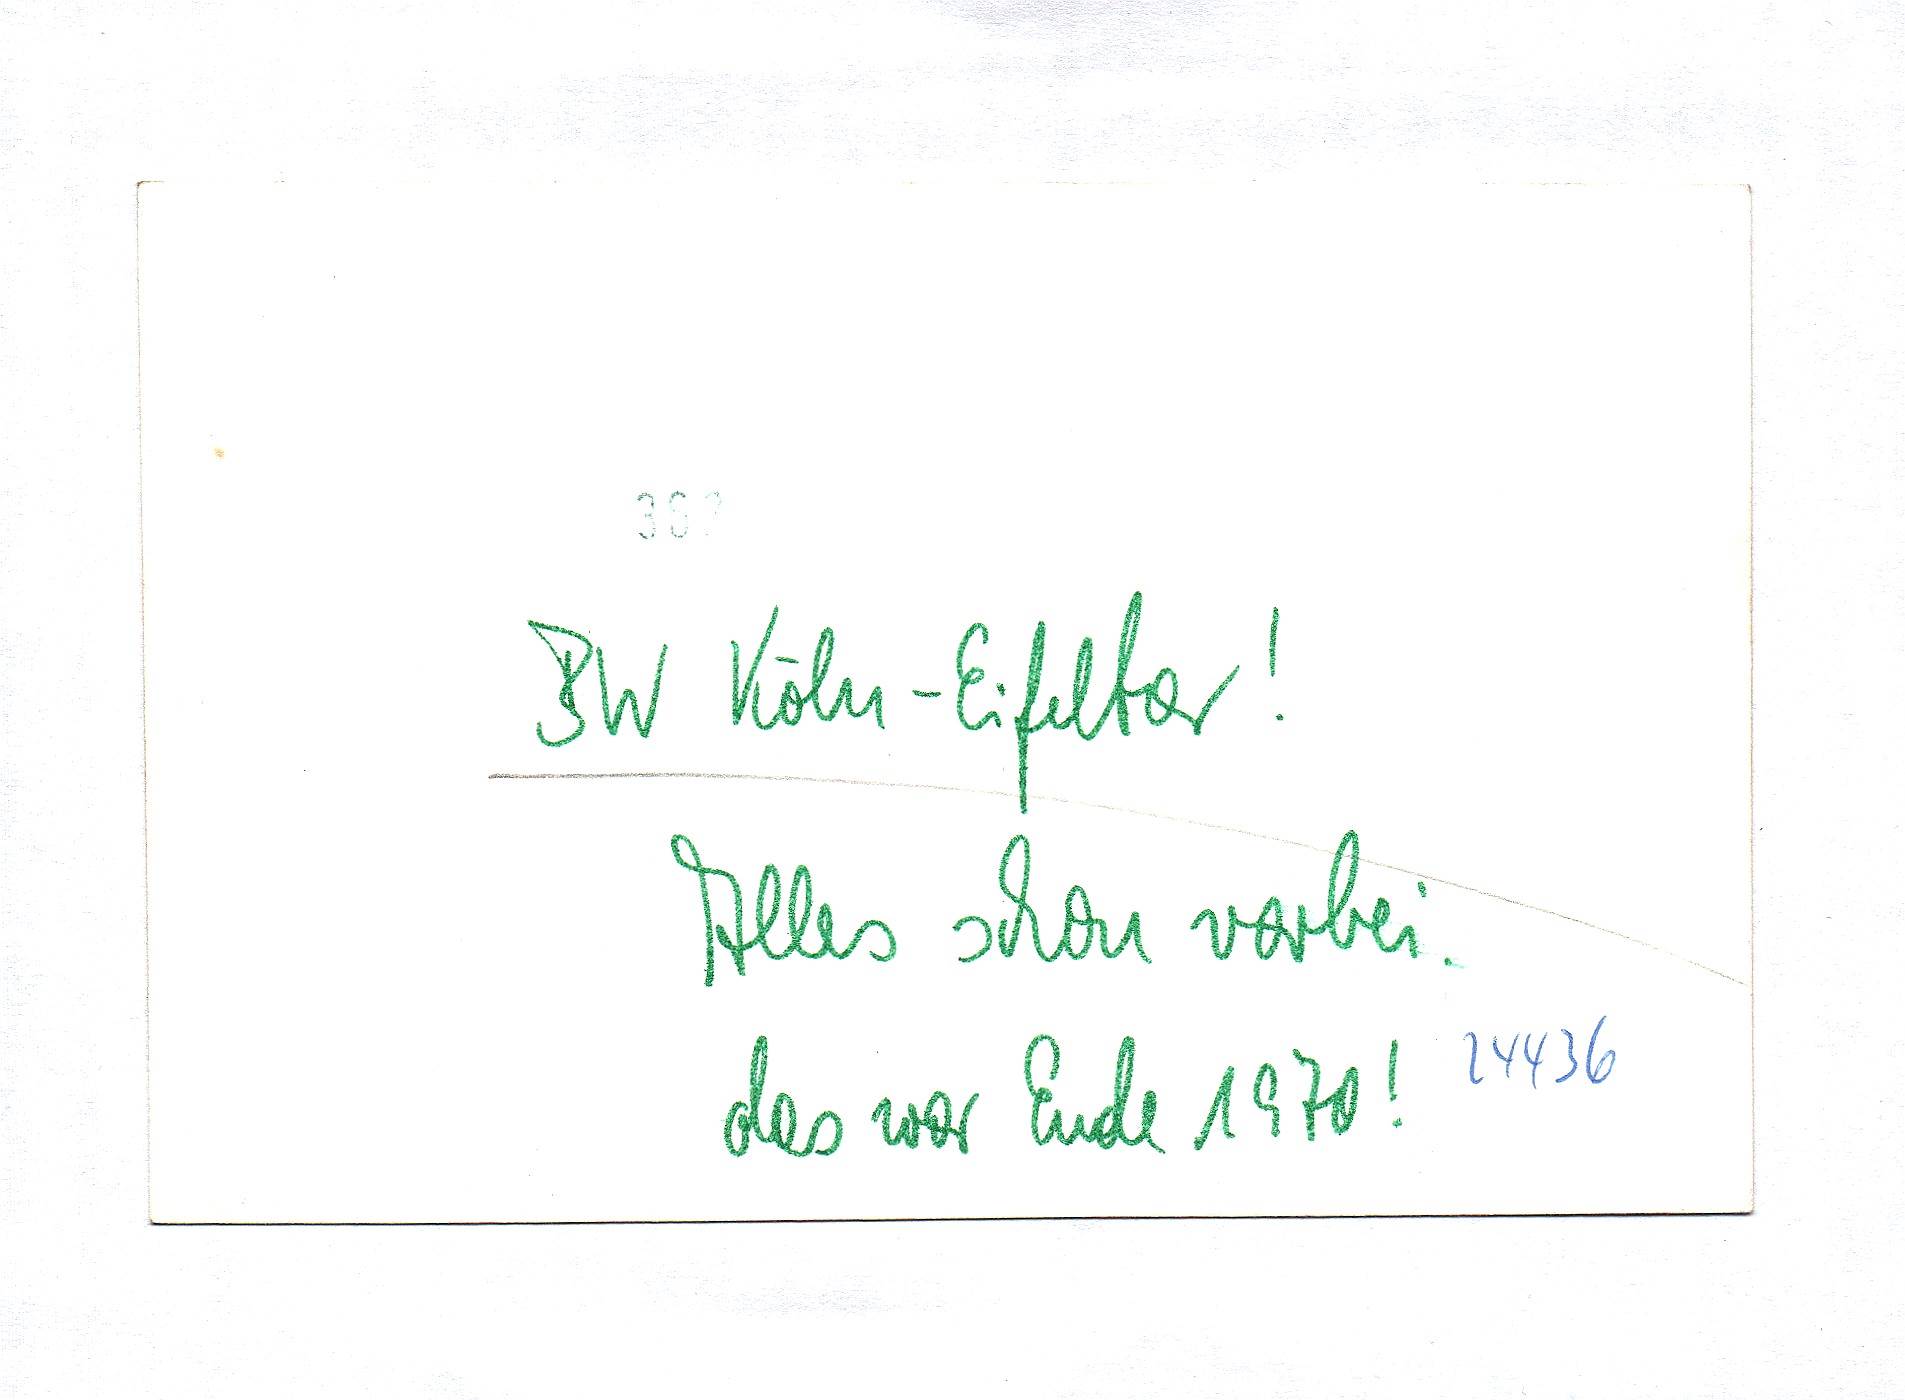 BW Köln-Eifeltor!
Alles schon vorbei.
das war Ende 1970!
24436